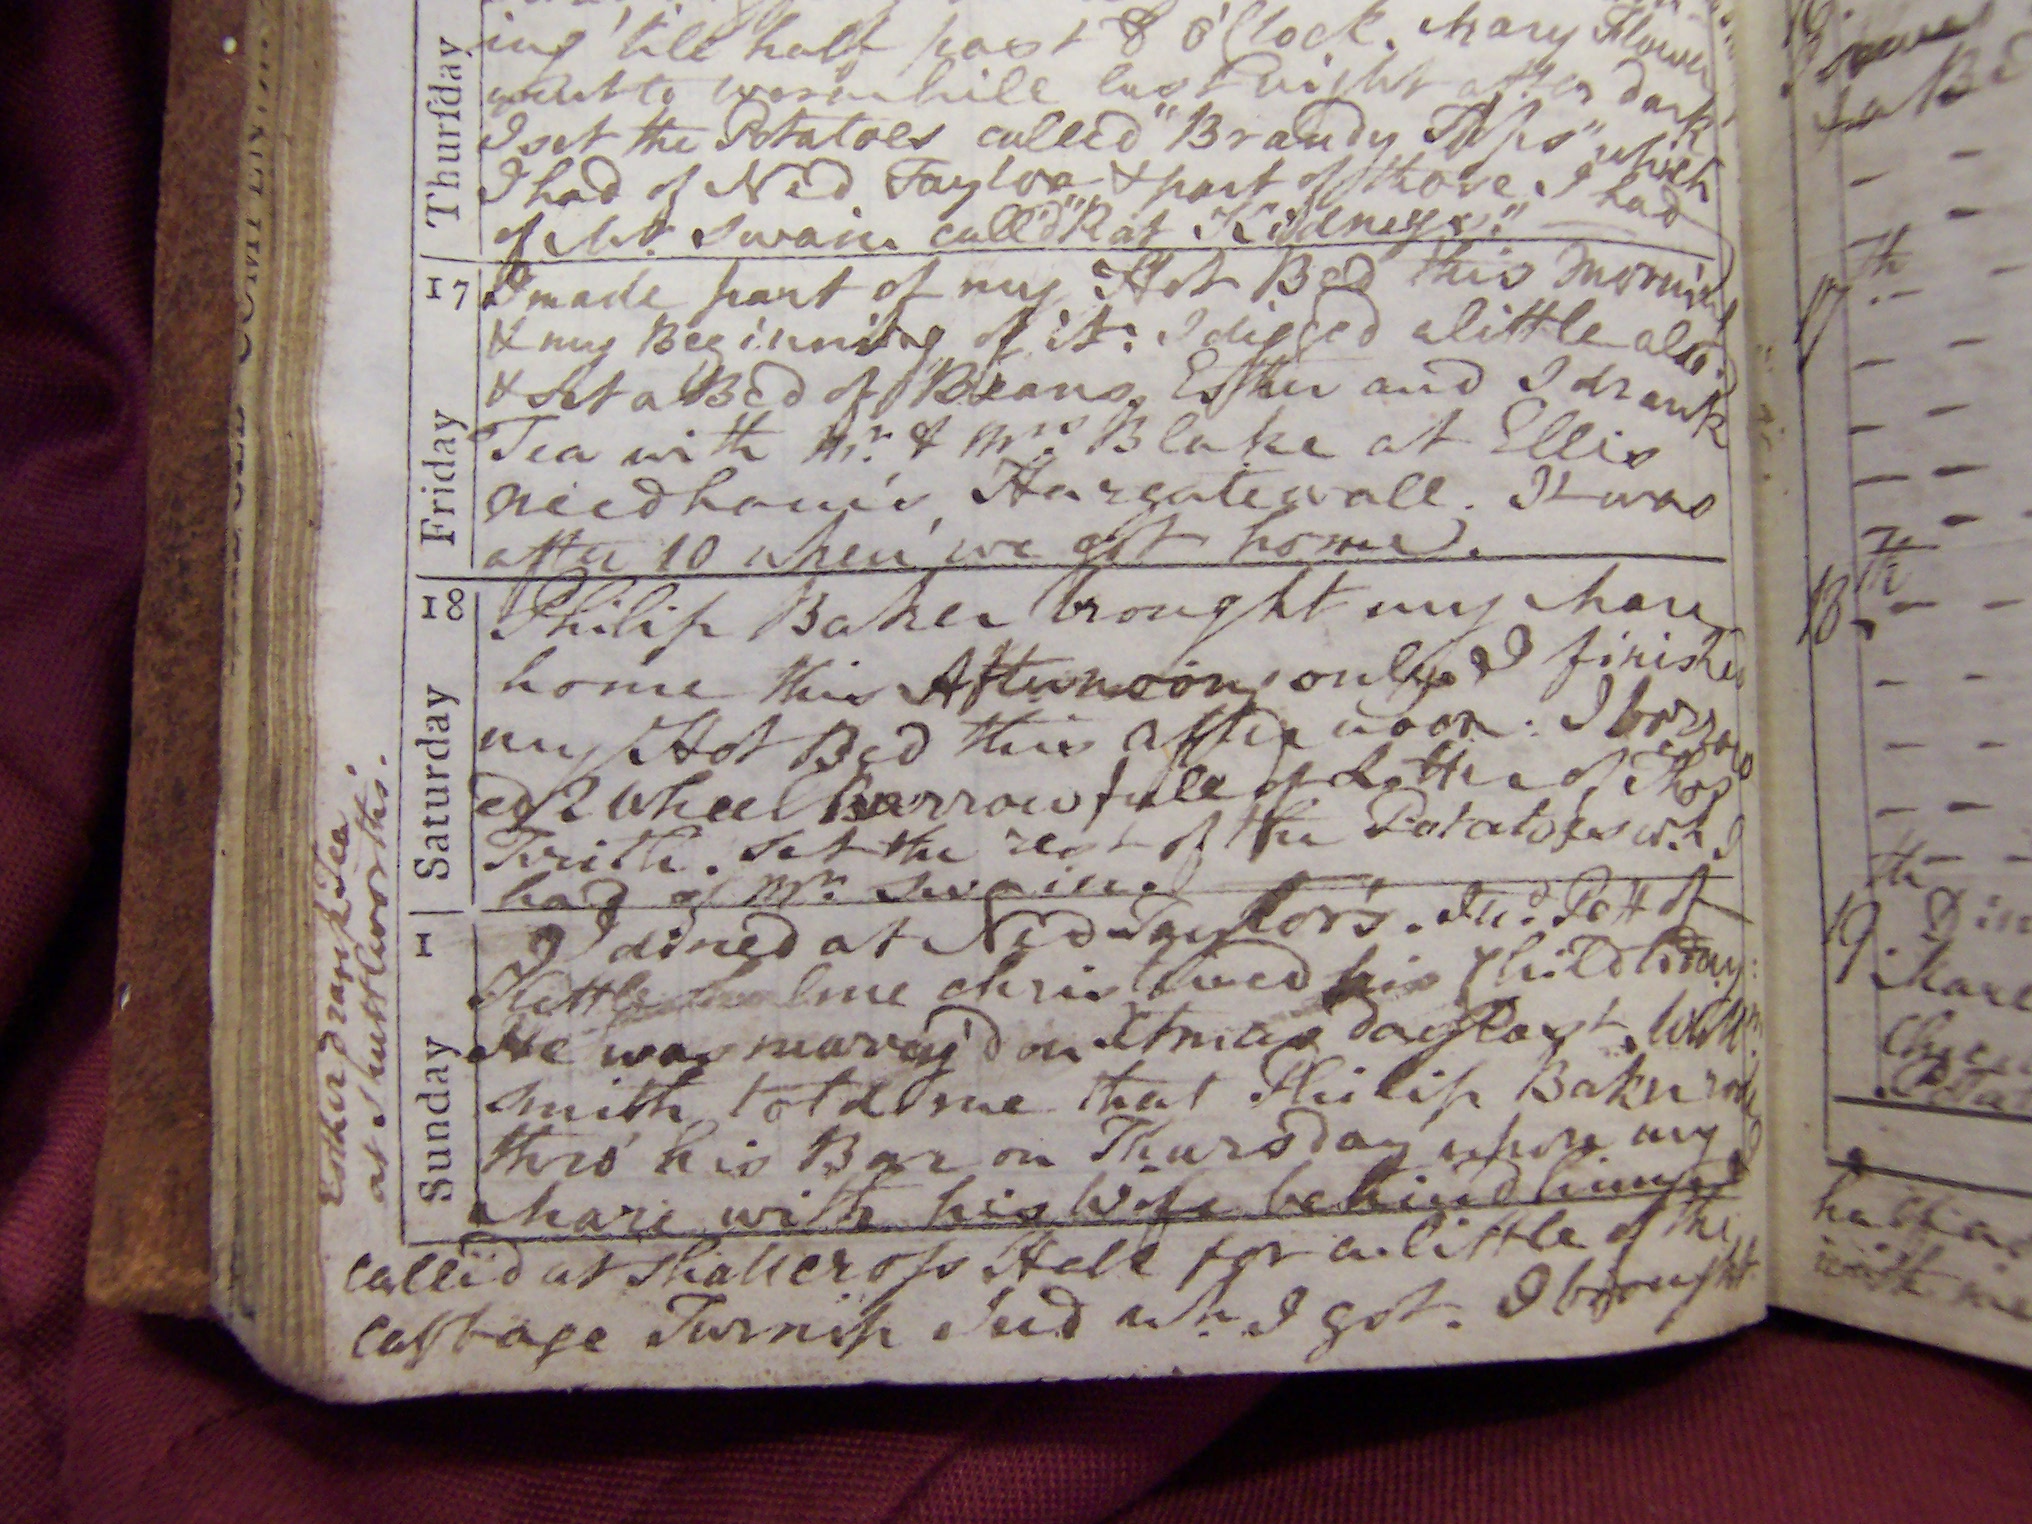 ing 'till half past 8 o'Clock. Mary Flower
went to Wormhill last night after dark
I set the Potatoes called "Brandy Tips" which
I had of Ned Taylor & part of those I had
of Mr. Swain call'd "Rat Kidneys."
Thursday
17
Friday
I made part of my Hot Bed this Morning
& my Beginning of it. I digged a little also.
& set a Bed of Beans. Esther and I drank
Tea with Mr. & Mrs. Blake at Ellis
Needham's, Hargatewall. It was
after 10 when we got home.
18
Saturday
Philip Baker brought my Mare
home this Afternoon only & I finished
my Hot Bed this afternoon. I borrow
ed 2 Wheel Barrow full of Litter of Thos
Frith. Set the rest of the Potatoes wh. I
had of Mr. Swain.
1
Sunday
I dined at Ned Taylor's. Jno. Pott of
christned his Child to day:
He was marry'd on Xtmas day last. Will.
Smith told me that Philip Baker rode
thro' his Bar on Thursday upon my
Mare with his Wife behind him. I
called at Shallcross Hall for a little of the
Cabbage Turnip Seed wh. I got. I brought
Esther drank Tea
at Shuttleworth's.
17 th
18 th
19 th